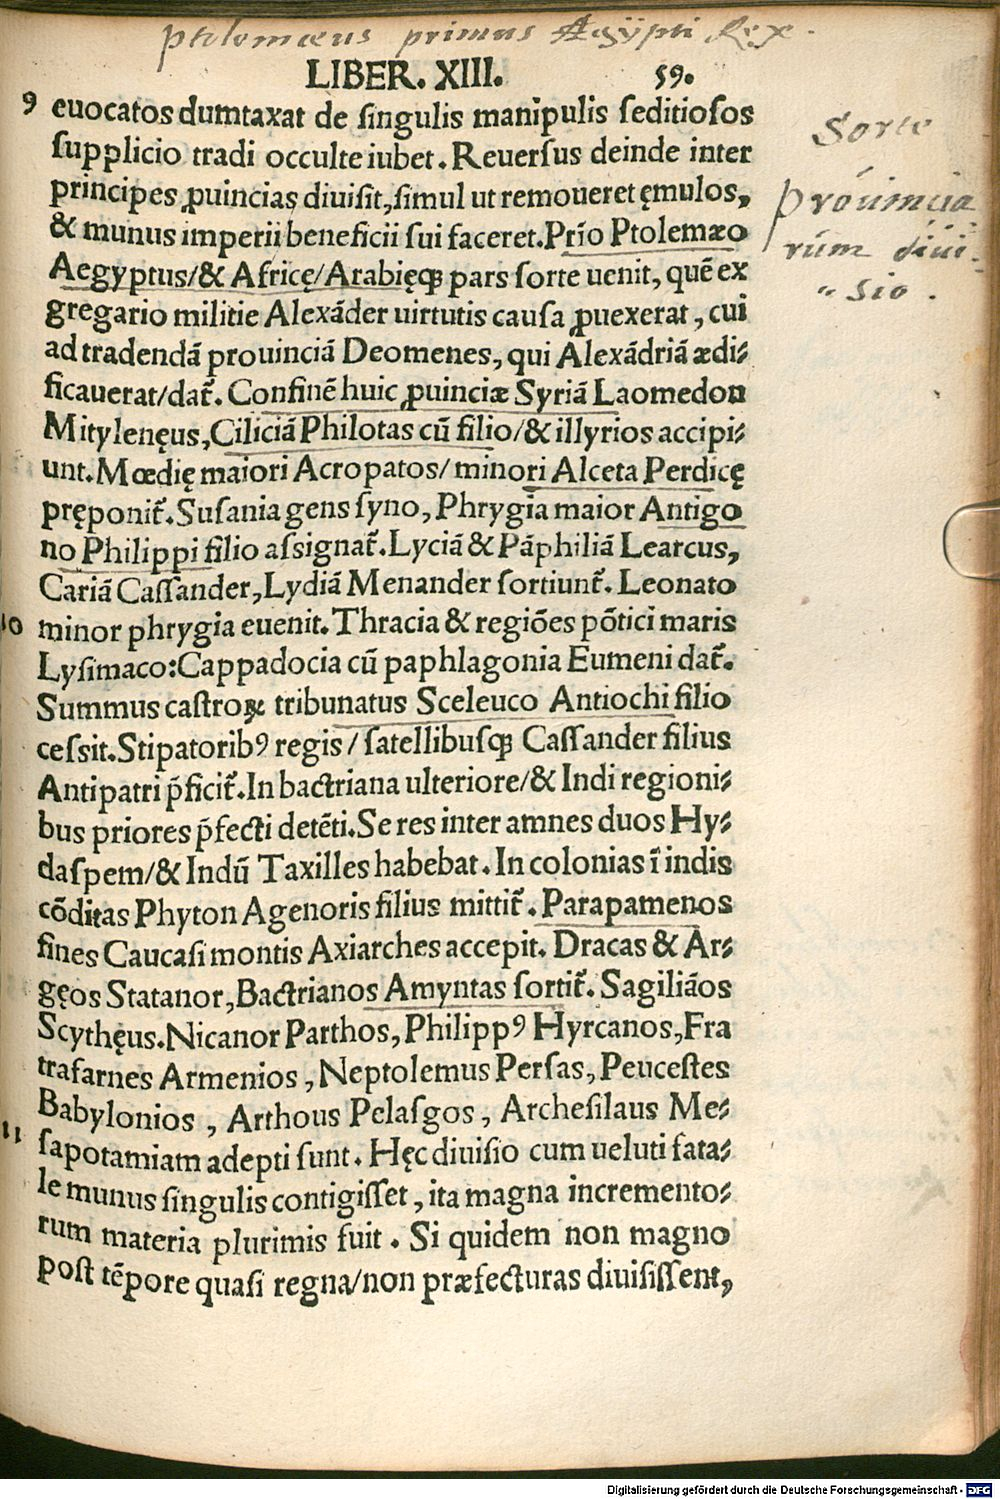 Ptolomæus primus Aegÿpti Rex.
LIBER. XIII. 59.
9 euocatos dumtaxat de ſingulis manipulis ſeditioſos
ſupplicio tradi occulte iubet. Reuerſus deinde inter
principes ꝓuincias diuiſit, ſimul ut remoueret ęmulos,
& munus imperii beneficii ſui faceret. Prīo Ptolemæo
Aegyptus/& Africę/Arabięqꝫ pars ſorte uenit, quē ex
gregario militie Alexāder uirtutis cauſa ꝓuexerat, cui
ad tradendā prouinciā Deomenes, qui Alexādriā ædi⸗
ficauerat/dat᷑. Confinē huic ꝓuinciæ Syriā Laomedon
Mitylenęus, Ciliciā Philotas cū filio/& illyrios accipi⸗
unt. Mœdię maiori Acropatos/ minori Alceta Perdicę
pręponit᷑. Suſania gens ſyno, Phrygia maior Antigo
no Philippi filio aſsignat᷑. Lyciā & Pāphiliā Learcus,
Cariā Caſſander, Lydiā Menander ſortiunt᷑. Leonato
10 minor phrygia euenit. Thracia & regiōes pōtici maris
Lyſimaco: Cappadocia cū paphlagonia Eumeni dat᷑.
Summus caſtroꝝ tribunatus Sceleuco Antiochi filio
ceſsit. Stipatoribꝰ regis / ſatellibuſqꝫ Caſſander filius
Antipatri p̄ficit᷑. In bactriana ulteriore/& Indi regioni⸗
bus priores p̄fecti detēti. Se res inter amnes duos Hy⸗
daſpem/& Indū Taxilles habebat. In colonias ī indis
cōditas Phyton Agenoris filius mittit᷑. Parapamenos
fines Caucaſi montis Axiarches accepit. Dracas & Ar⸗
gęos Statanor, Bactrianos Amyntas ſortit᷑. Sagiliāos
Scythęus. Nicanor Parthos, Philippꝰ Hyrcanos, Fra
trafarnes Armenios, Neptolemus Perſas, Peuceſtes
Babylonios, Arthous Pelaſgos, Archeſilaus Me⸗
11 ſapotamiam adepti ſunt. Hęc diuiſio cum ueluti fata⸗
le munus ſingulis contigiſſet, ita magna incremento⸗
rum materia plurimis fuit. Si quidem non magno
poſt tēpore quaſi regna/non præfecturas diuiſiſſent,
Sorte
Prouincia
rum diui-
sio.
Digitalisierung gefördert durch die Deutsche Forschungsgemeinschaft - DFG